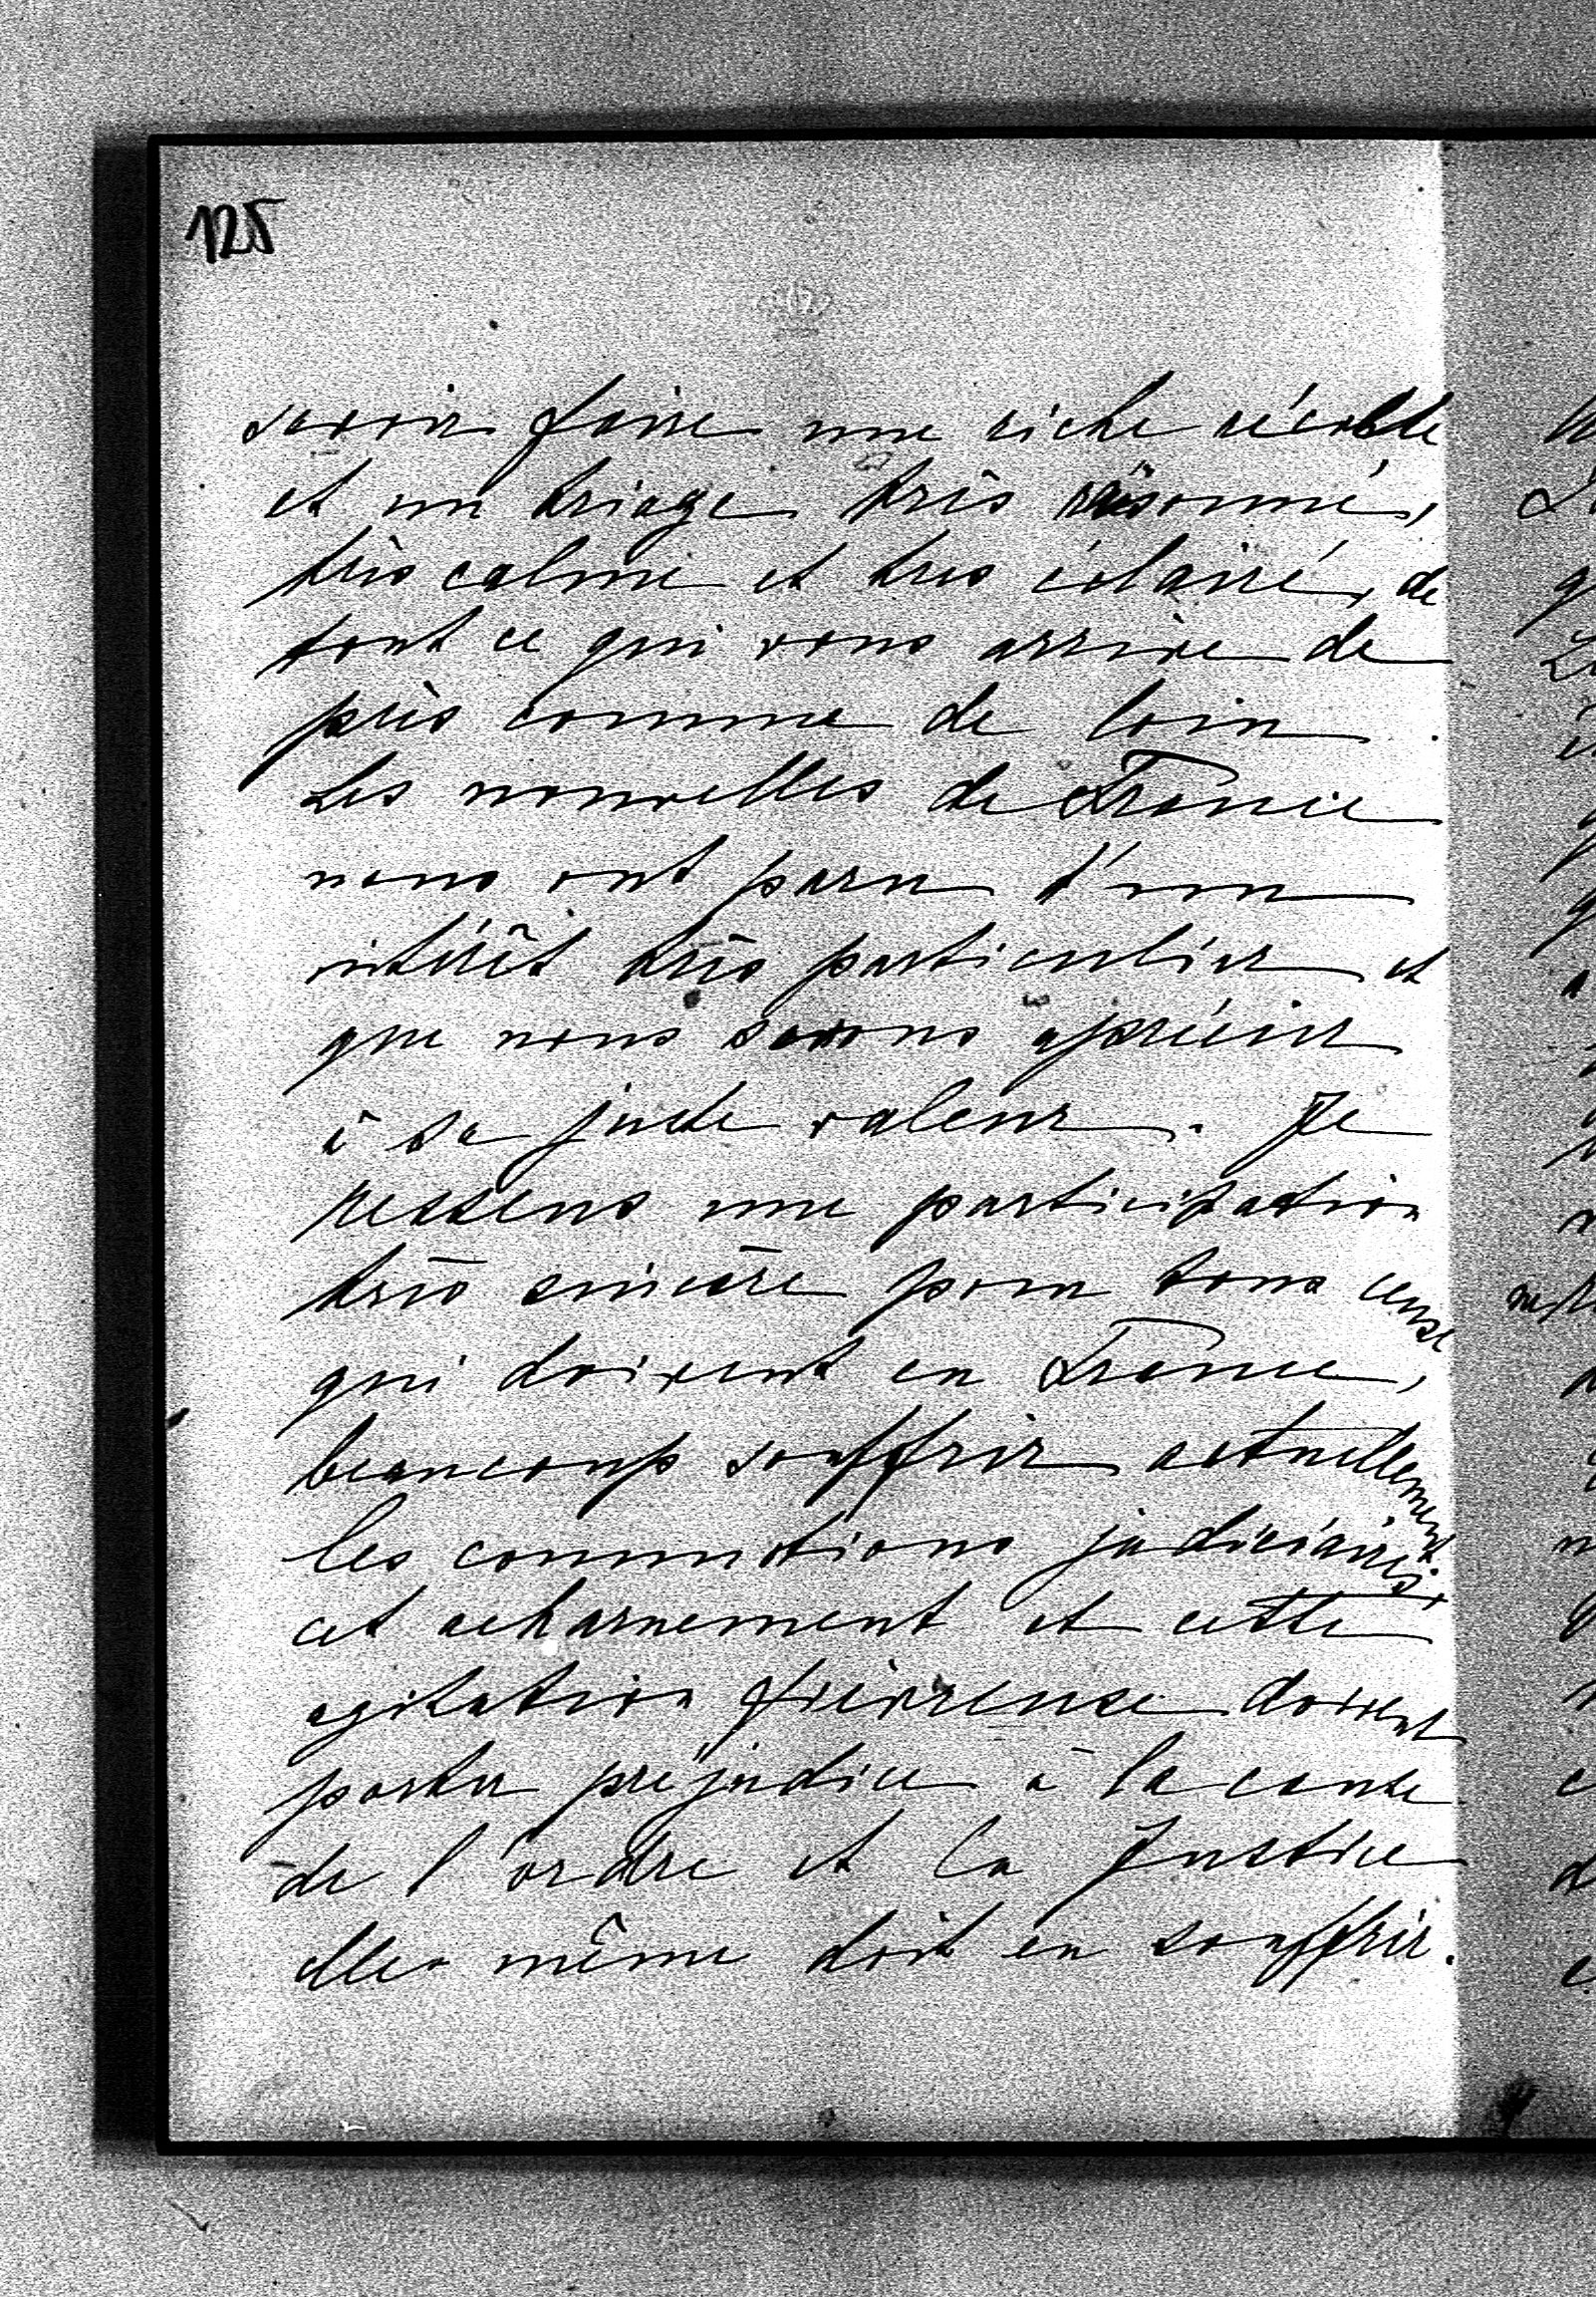 125
savoir faire une riche récolte
et un triage très raisonné,
très calme et très éclairé, de
tout ce qui vous arrive de
près comme de loin.
Les nouvelles de France
nous ont paru d'un
intérêt très particulier et
que nous savons aprécier
à sa juste valeur. Je
ressens une participation
très sincère pour tous ceux
qui doivent en France,
beaucoup souffrir actuellement
les commotions judiciaires,
cet acharnement et cette
agitation fiévreuse doivent
porter préjudice à la cause
de l'ordre et la Justice
elle même doit en souffrir.